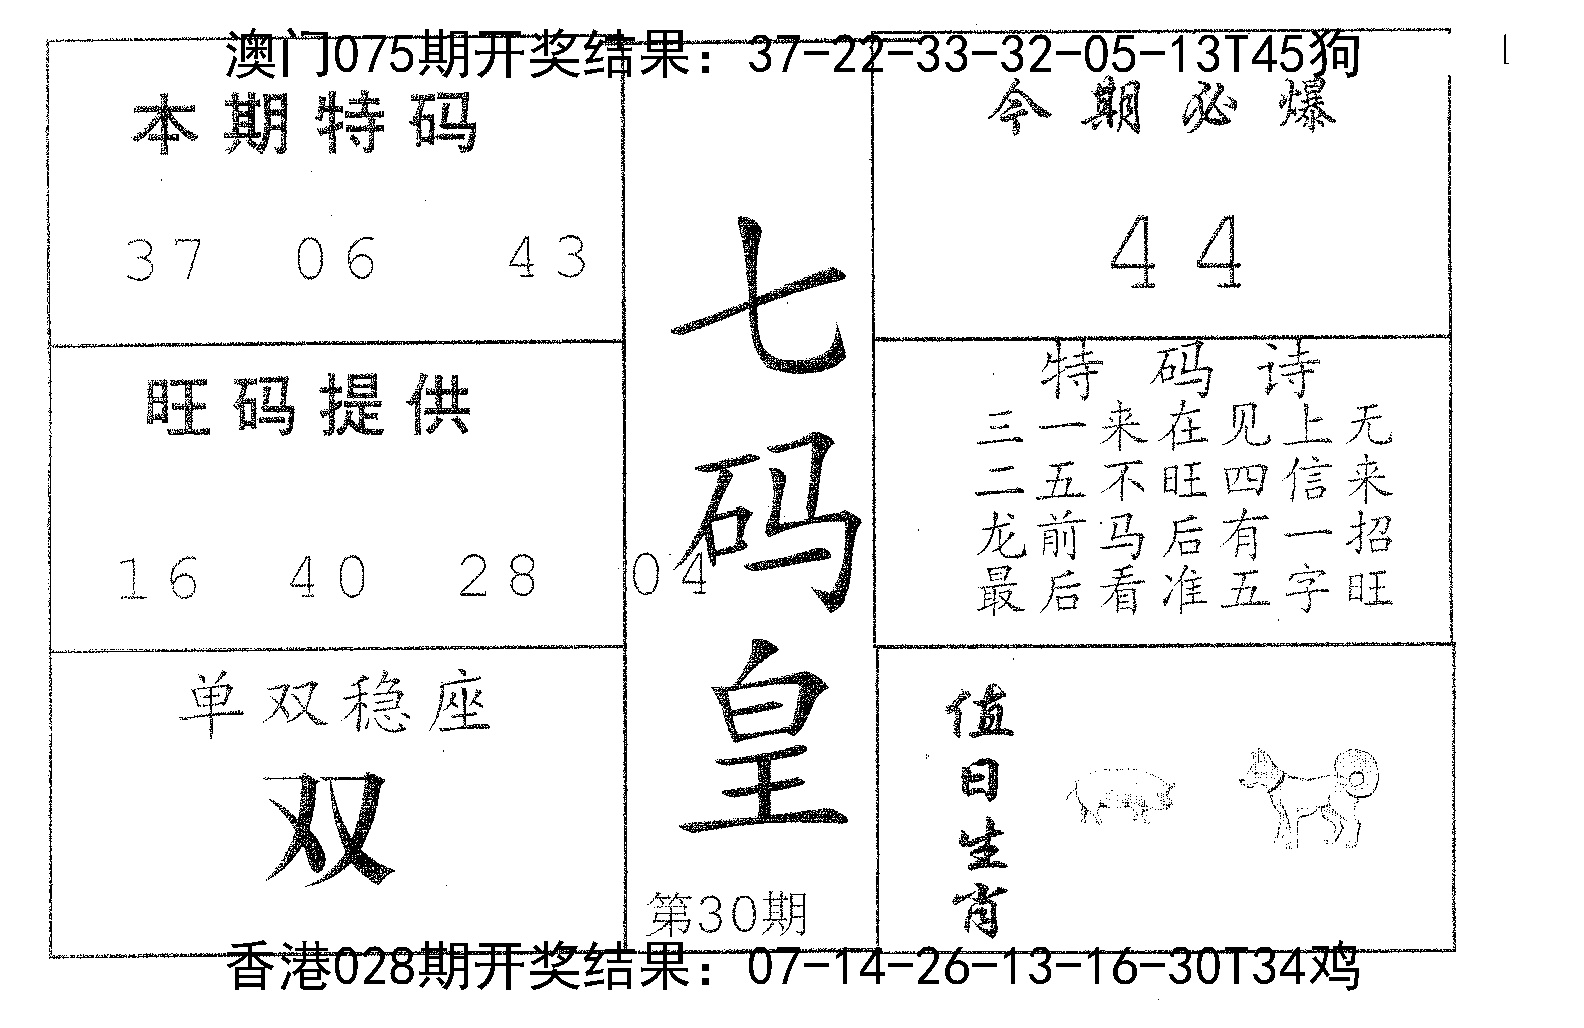 澳门075期开奖结果：37-22-33-32-05-13T45狗
本期特码
37 06 43
旺码提供
16 40 28 04
单双稳座
双
七码皇
第30期
今期必爆
44
特码诗
三一来在见上无
二五不旺四信来
龙前马后有一招
最后看准五字旺
值日生肖
香港028期开奖结果：07-14-26-13-16-30T34鸡